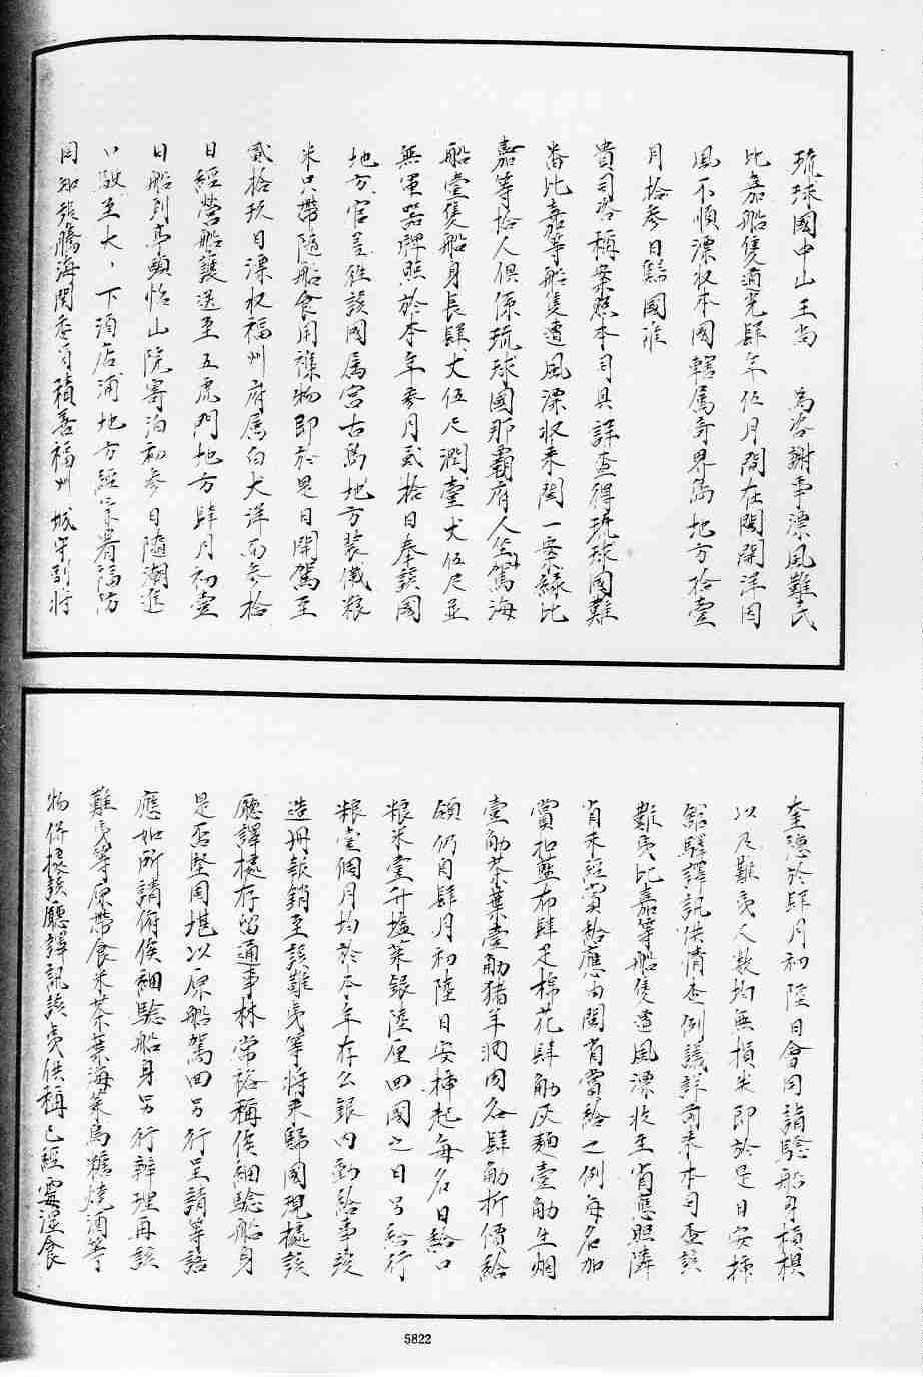 琉球國中山王尚　為咨謝事漂風難民
比嘉船隻道光肆年伍月間在閩開洋因
風不順漂收本國轄属奇界島地方拾壹
月拾參日歸國准
貴司咨稱案照本司具詳查得琉球國難
番比嘉等船隻遭風漂收來閩一案緣比
嘉等拾人俱係琉球國那霸府人坐駕海
船壹隻船身長肆丈伍尺濶壹丈伍尺並
無軍器牌照於本年參月貳拾日奉該國
地方官差徃該國属宮古島地方裝儎粮
米只帶隨船食用襍物即於是日開駕至
貳拾玖日漂收福州府属白犬洋面參拾
日經營船護送至五虎門地方肆月初壹
日船到亭頭怡山院寄泊初參日隨潮進
口駛至大、下酒店浦地方經署福防
同知張騰海関委員積善福州城守副將
奎德於肆月初陸日會同詣驗船身槓棋
以及難夷人数均無損失即於是日安揷
舘驛譯訊供情查例議詳前來本司查該
難夷比嘉等船隻遭風漂收至省應照隣
省未經賞給應由閩省賞給之例每名加
賞扣壓布肆疋棉花肆觔灰麵壹觔生烟
壹觔茶葉壹觔猪羊酒肉各肆觔折價給
領仍自肆月初陸日安揷起每名日給口
粮米壹升塩菜銀陸厘回國之日另給行
粮壹個月均於本年存公銀内動給事竣
造册報銷至該難夷等將來歸國現據該
廳譯據存留通事林常裕稱俟細驗船身
是否堅固堪以原船駕回另行呈請等語
應如所請俯俟細驗船身另行辦理再該
難夷等原帶食米茶葉海菜烏糖燒酒等
物併據該廳譯訊該夷供稱已經霉湿食
5822